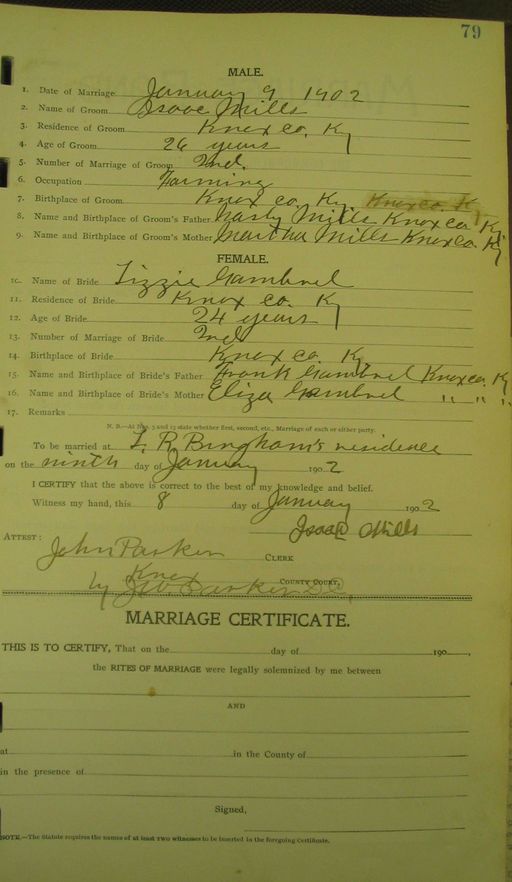 79
MALE.
1. Date of Marriage January 9 1902
2. Name of Groom Isaac Mills
3. Residence of Groom Knox co. Ky
4. Age of Groom 26 years
5. Number of Marriage of Groom 2nd.
6. Occupation Farming
7. Birthplace of Groom Knox co. Ky. Knox co. Ky
8. Name and Birthplace of Groom's Father Mills Knox co. Ky.
9. Name and Birthplace of Groom's Mother Martha Mills Knox co. Ky
FEMALE.
10. Name of Bride Lizzie Gambrel
11. Residence of Bride Knox co. Ky
12. Age of Bride 24 years
13. Number of Marriage of Bride 2nd
14. Birthplace of Bride Knox co. Ky.
15. Name and Birthplace of Bride's Father Frank Gambrel Knox co. Ky
16. Name and Birthplace of Bride's Mother Eliza Gambrel " " "
17. Remarks
N. B.—At Nos. 5 and 13 state whether first, second, etc., Marriage of each or either party.
To be married at R. Bingham's residence
on the ninth day of January 1902
I CERTIFY that the above is correct to the best of my knowledge and belief.
Witness my hand, this 8 day of January 1902
Isaac Mills
ATTEST: John Parker CLERK
Knox COUNTY COURT,
by Parker D.C.
MARRIAGE CERTIFICATE.
THIS IS TO CERTIFY, That on the day of 190 ,
the RITES OF MARRIAGE were legally solemnized by me between
AND
at in the County of
in the presence of
Signed,
NOTE.—The Statute requires the names of at least two witnesses to be inserted in the foregoing Certificate.